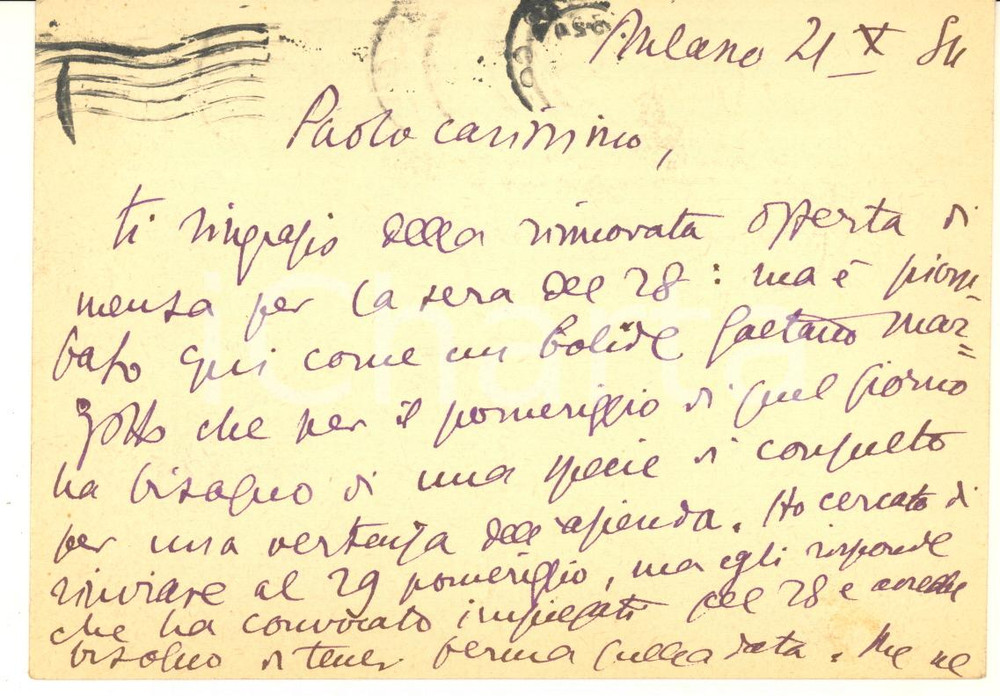 Milano 21 X 54
Paolo carissimo,
ti ringrazio della rinnovata offerta di
mensa per la sera del 28: ma è piom-
bato qui come un bolide Gaetano Mar=
zotto che per il pomeriggio di quel giorno
ha bisogno di una specie di consulto
per una vertenza dell'azienda. Ho cercato di
rinviare al 29 pomeriggio, ma egli risponde
che ha convocato impiegati pel 28 e avrebbe
bisogno di tener ferma quella data. Me ne
iCharta